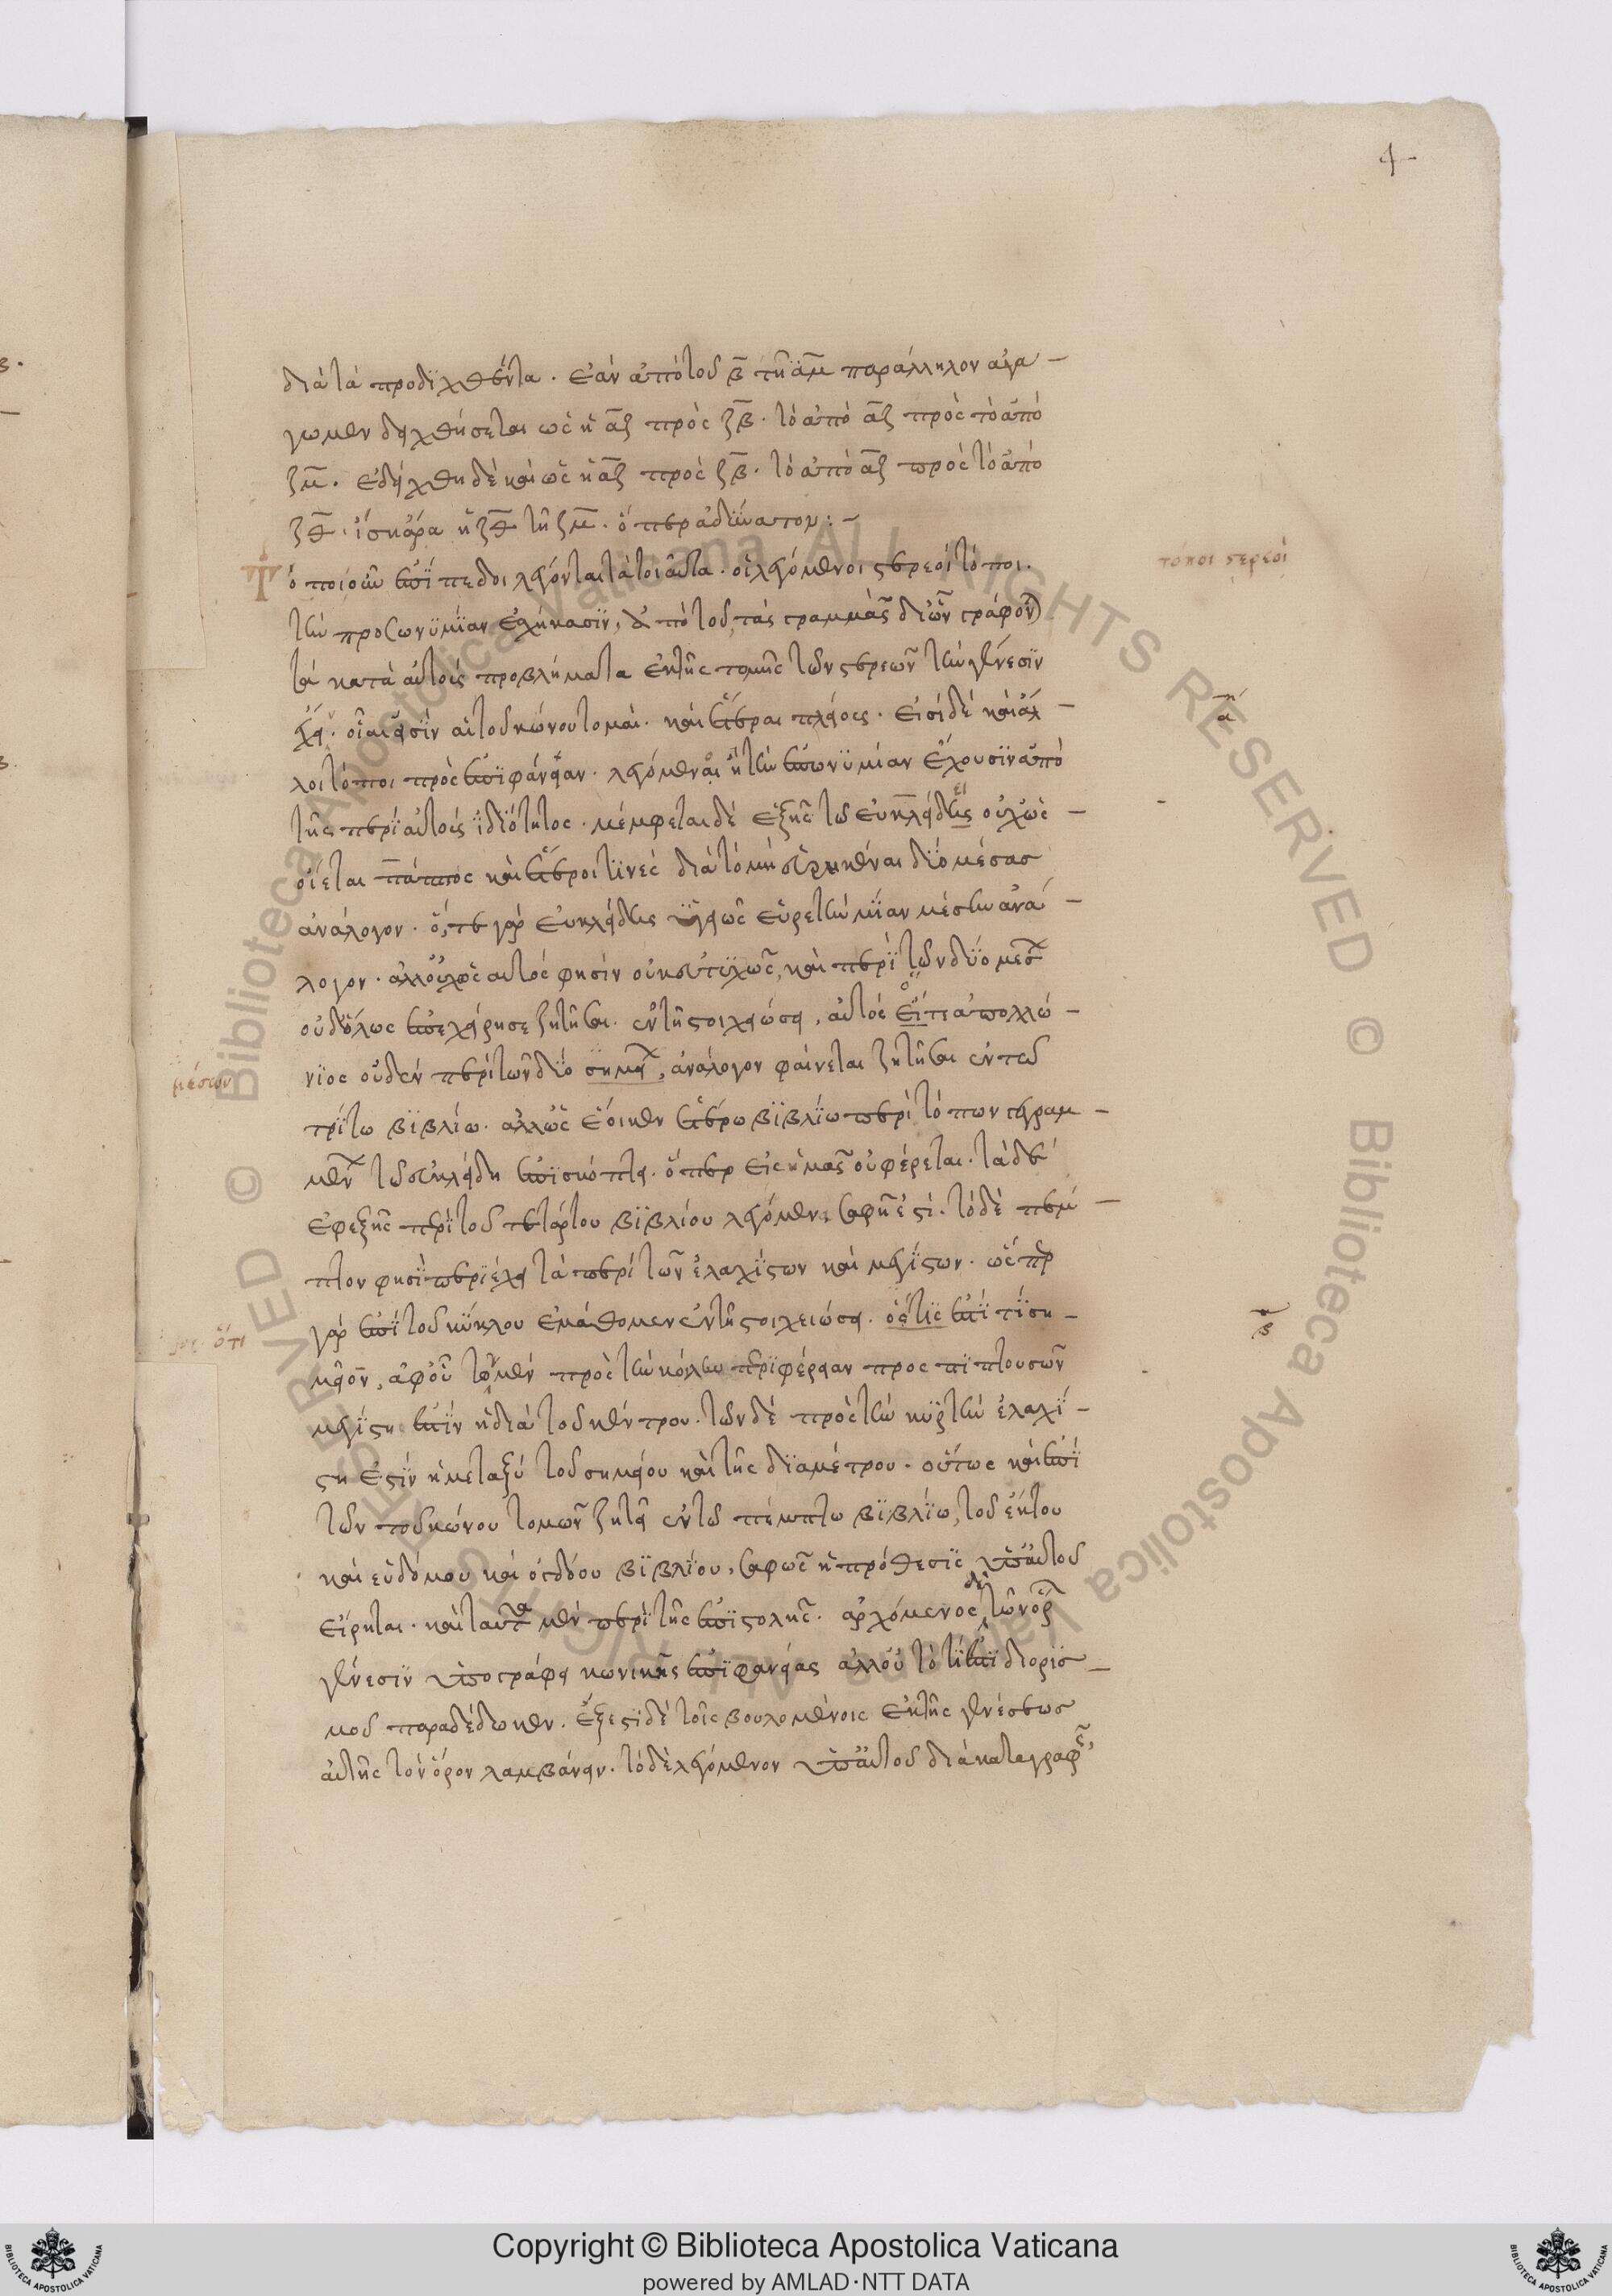 4
διὰ τὰ προδϊχθέντα. ἐὰν ἀπὸ τοῦ β τῆ αμ παράλληλον ἀγα
γωμεν δειχθήσεται ὡς ἡ αζ πρὸς ζβ. τὸ ἀπὸ αζ πρὸς τὸ ἀπὸ
ζμ. ἐδείχθη δὲ καὶ ὡς ἡ αζ πρὸς ζβ. τὸ ἀπὸ αζ πρὸς τὸ ἀπὸ
ζθ. ἴση ἄρα ἡ ζθ τῆ ζμ. ὅπερ ἀδύνατον:-
τόποι στερεοὶ
ὁποῖοι οὖν ἐπίπεδοι λέγονται τὰ τοιαῦτα. οἱ λεγόμενοι στερεοὶ τόποι.
τὴν προσωνυμίαν ἐσχήκασϊν, ἀπὸ τοῦ τὰς γραμμὰς δι' ὧν γράφον
τὰ κατὰ αὐτοὺς προβλήματα ἐκ τῆς τομῆς τῶν στερεῶν τὴν γένεσϊν
ἔχει. οἷαι εἰσϊν αἱ τοῦ κώνου τομαὶ. καὶ ἕτεραι πλείους. εἰσὶ δὲ καὶ ἄλ
α
λοι τόποι πρὸς ἐπϊφάνειαν λεγόμενοι τὴν ἐπωνυμίαν ἔχουσϊν ἀπὸ
τῆς περϊ αὐτοὺς ϊδϊότητος. μέμφεται δὲ ἑξῆς τῶ εὐκλείδει οὐχ ὡς
οἴεται πάππος καὶ ἕτεροι τϊνὲς διὰ τὸ μὴ εὑρηκέναι δύο μέσας
ἀνάλογον. ὅ,τε γὰρ εὐκλείδης ὑγιῶς εὗρε τὴν μίαν μέσην ἀνά
λογον. ἀλλ' οὐχ ὡς αὐτός φησὶν οὐκ εὐτυχῶς, καὶ περὶ τῶν δύο μεσ
οὐδόλως ἐπεχείρησε ζητῆσαι. ἐν τῆ στοιχειώσει, αὐτὸς ὅ τι ἀπολλώ
μέσων
νϊος οὐδὲν περὶ τῶν δύο σημει, ἀνάλογον φαίνεται ζητῆσαι ἐν τῶ
τρίτω βϊβλίω. ἀλλ' ὡς ἔοικεν ἑτέρω βϊβλϊω περὶ τόπων γεγραμ
μεν τῶ εὐκλείδη ἐπϊσκόπτει. ὅπερ εἰς ἡμᾶς οὐ φέρεται. τὰ δὲ
ἐφεξῆς περὶ τοῦ τετάρτου βϊβλίου λεγόμενα σαφῆ ἐστί. τὸ δὲ πέμ
πτον φησὶ περϊέχει τὰ περὶ τῶν ἐλαχίστων καὶ μεγίστων. ὥσπερ
γὰρ ἐπὶ τοῦ κύκλου ἐμάθομεν ἐν τῆ στοιχειώσει. ὅς τις ἐπὶ τϊ ση
β
ὅτι
μεῖον, ἀφ' οὗ τῶν μὲν πρὸς τὴν κοίλην περϊφέρειαν προσπϊπτουσῶν
μεγίστη ἐστὶν ἡ διὰ τοῦ κέντρου. τῶν δὲ πρὸς τὴν κυρτὴν ἐλαχί
στη ἐστϊν ἡ μεταξὺ τοῦ σημείου καὶ τῆς δϊαμέτρου. οὕτως καὶ ἐπὶ
τῶν τοῦ κώνου τομῶν ζητεῖ ἐν τῶ πέμπτω βϊβλίω, τοῦ ἕκτου
καὶ ἑβδόμου καὶ ὀγδόου βϊβλϊου, σαφῶς ἡ πρόθεσις ὑπ' αὐτοῦ
εἴρηται. καὶ ταῦτα μὲν περὶ τῆς ἐπϊστολῆς. ἀρχόμενος δὲ τῶν ὅρ
γένεσϊν ὑπογράφει κωνικῆς ἐπϊφανείας ἀλλ' οὐ τὸ τί ἐστι διορισ
μοῦ παραδέδωκεν. ἔξεστϊ δὲ τοῖς βουλομένοις ἐκ τῆς γενέσεως
αὐτῆς τὸν ὅρον λαμβάνειν. τὸ δὲ λεγόμενον ὑπ' αὐτοῦ διὰ καταγραφ
Copyright © Biblioteca Apostolica Vaticana
powered by AMLAD·NTT DATA